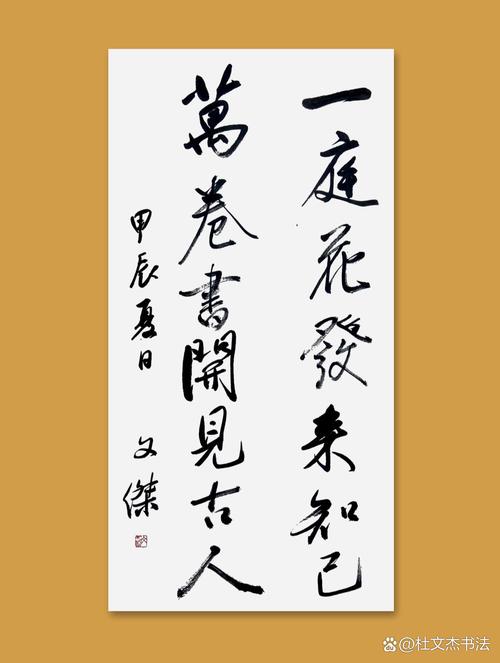 一庭花發来知己
萬卷書開見古人
甲辰夏日 文傑
@杜文杰书法